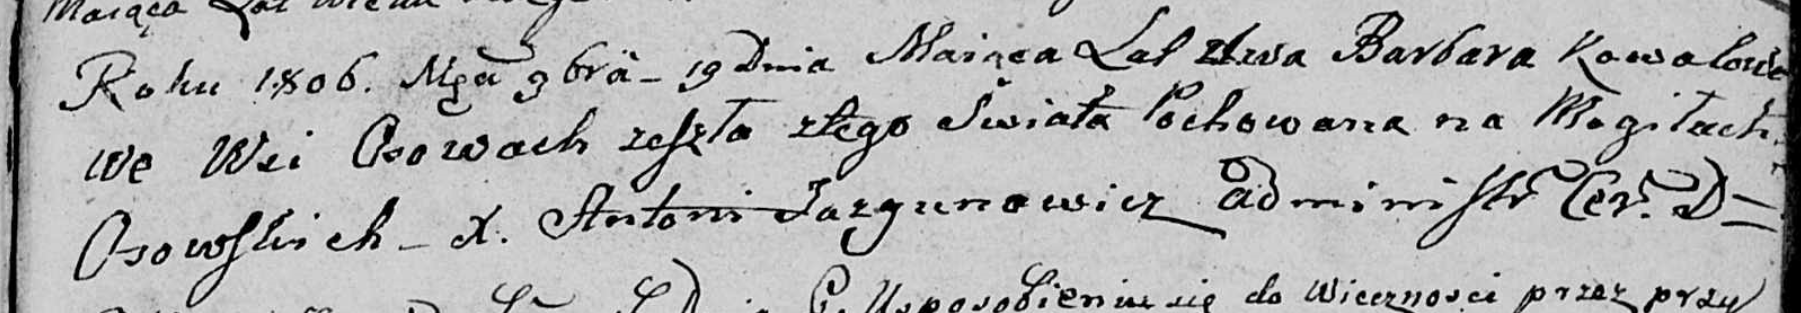 Maiąca Lat wieku
Roku 1806. Mca 9brä - 19 Dnia Maiąca Lat dwa Barbara Kowalowa
we Wsi Osowach zeszła ztego Świata Pochowana na Mogiłach
Osowskich - X. Antoni Jazgunowicz Administr Cer. D=
Usposobieniu się do Wiecznosci przez przy